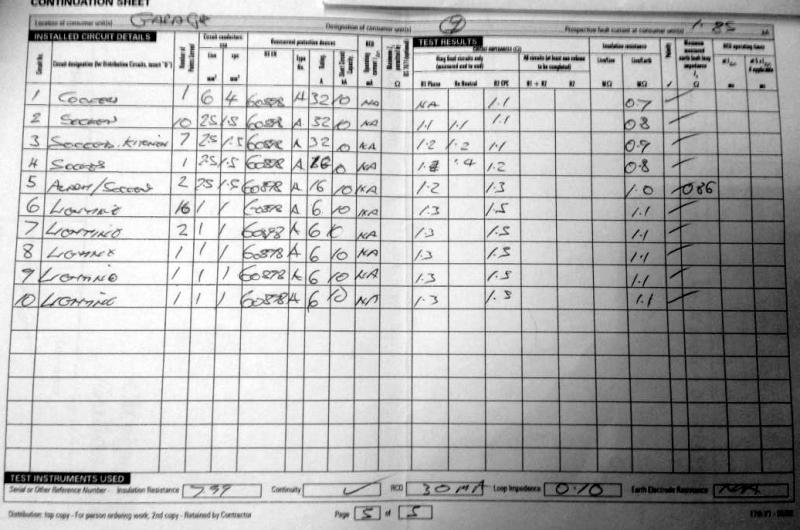 CONTINUATION SHEET
Location of consumer unit(s) GARAGE Designation of consumer unit(s) 9 Prospective fault current at consumer unit(s) 1.85 kA
INSTALLED CIRCUIT DETAILS TEST RESULTS
Circuit conductors Overcurrent protective devices RCD CIRCUIT IMPEDANCES (Ω) Insulation resistance RCD operating times
Circuit No. Circuit designation (for Distribution Circuits, insert "D") Number of Points Served Live cpc BS EN Type No. Rating Short Circuit Capacity Ring final circuits only (measured end to end) All circuits (at least one column to be completed) Live/Live Live/Earth Polarity Maximum measured earth fault loop impedance
mm² mm² A kA mA Ω R1 Phase Rn Neutral R2 CPC R1 + R2 R2 MΩ MΩ ✓ Ω ms ms
1 COOKER 1 6 4 60898 A 32 10 NA NA 1.1 0.7 ✓
2 SOCKETS 10 2.5 1.5 60898 A 32 10 NA 1.1 1.1 1.1 0.8 ✓
3 SOCKETS. KITCHEN 7 2.5 1.5 60898 A 32 10 NA 1.2 1.2 1.1 0.9 ✓
4 SOCKETS 1 2.5 1.5 60898 A 16 10 NA 1.4 1.2 0.8 ✓
5 ALARM/SOCKETS 2 2.5 1.5 60898 A 16 10 NA 1.2 1.3 1.0 ✓ 086
6 LIGHTING 16 1 1 60898 A 6 10 NA 1.3 1.5 1.1 ✓
7 LIGHTING 2 1 1 60898 A 6 10 NA 1.3 1.5 1.1 ✓
8 LIGHTING 1 1 1 60898 A 6 10 NA 1.3 1.5 1.1 ✓
9 LIGHTING 1 1 1 60898 A 6 10 NA 1.3 1.5 1.1 ✓
10 LIGHTING 1 1 1 60898 A 6 10 NA 1.3 1.5 1.1 ✓
TEST INSTRUMENTS USED
Serial or Other Reference Number - Insulation Resistance 7.99 Continuity ✓ RCD 30 MA Loop Impedance 0.10 Earth Electrode Resistance N/A
Distribution: top copy - For person ordering work, 2nd copy - Retained by Contractor Page 5 of 5